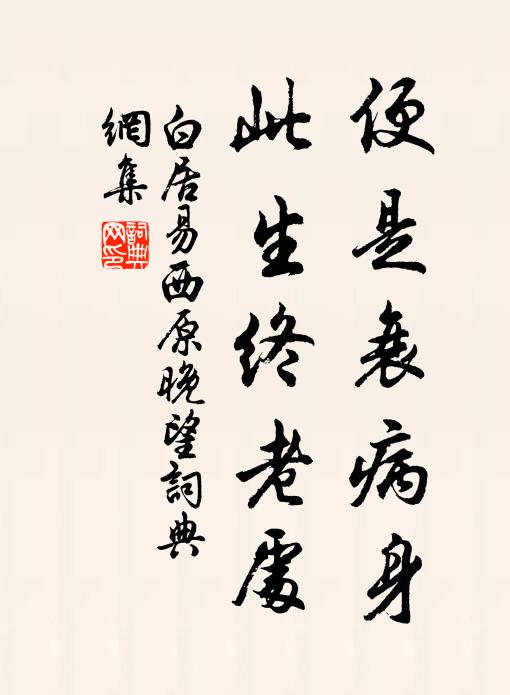 便是衰病身
此生終老處
白居易西原晚望詞典
網集
詞典
网印